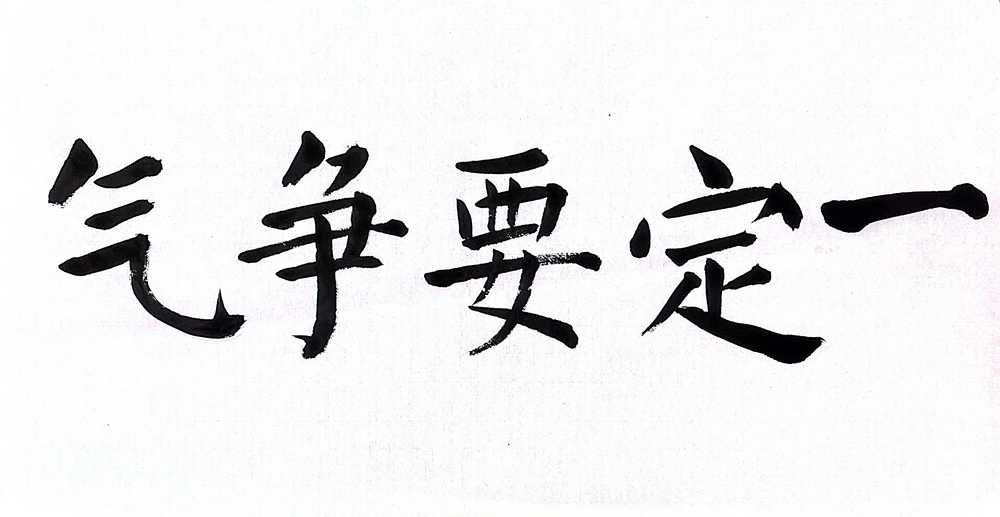 一定要争气